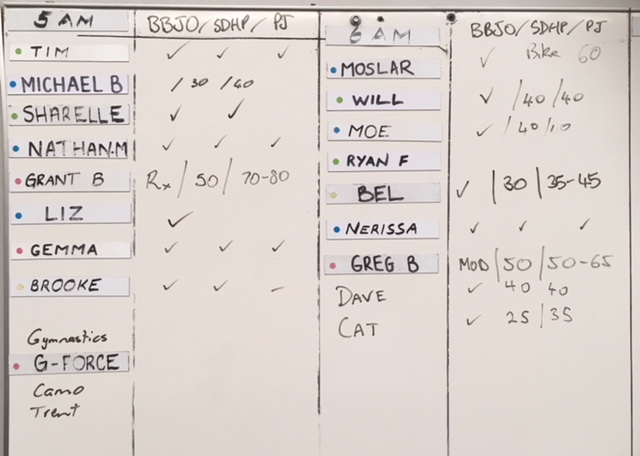 5 AM BBJO/SDHP/PJ
TIM ✓ ✓ ✓
MICHAEL B / 30 / 40
SHARELLE ✓ ✓
NATHAN.M ✓ ✓ ✓
GRANT B Rx / 50 / 70-80
LIZ ✓
GEMMA ✓ ✓ ✓
BROOKE ✓ ✓ –
Gymnastics
G-FORCE
Camo
Trent
6 AM BBJO/SDHP/PJ
MOSLAR ✓ Bike 60
WILL ✓ / 40 / 40
MOE ✓ / 40 /
RYAN F
BEL ✓ | 30 | 35-45
NERISSA ✓ ✓ ✓
GREG B MOD | 50 | 50-65
DAVE ✓ 40 40
CAT ✓ 25 | 35